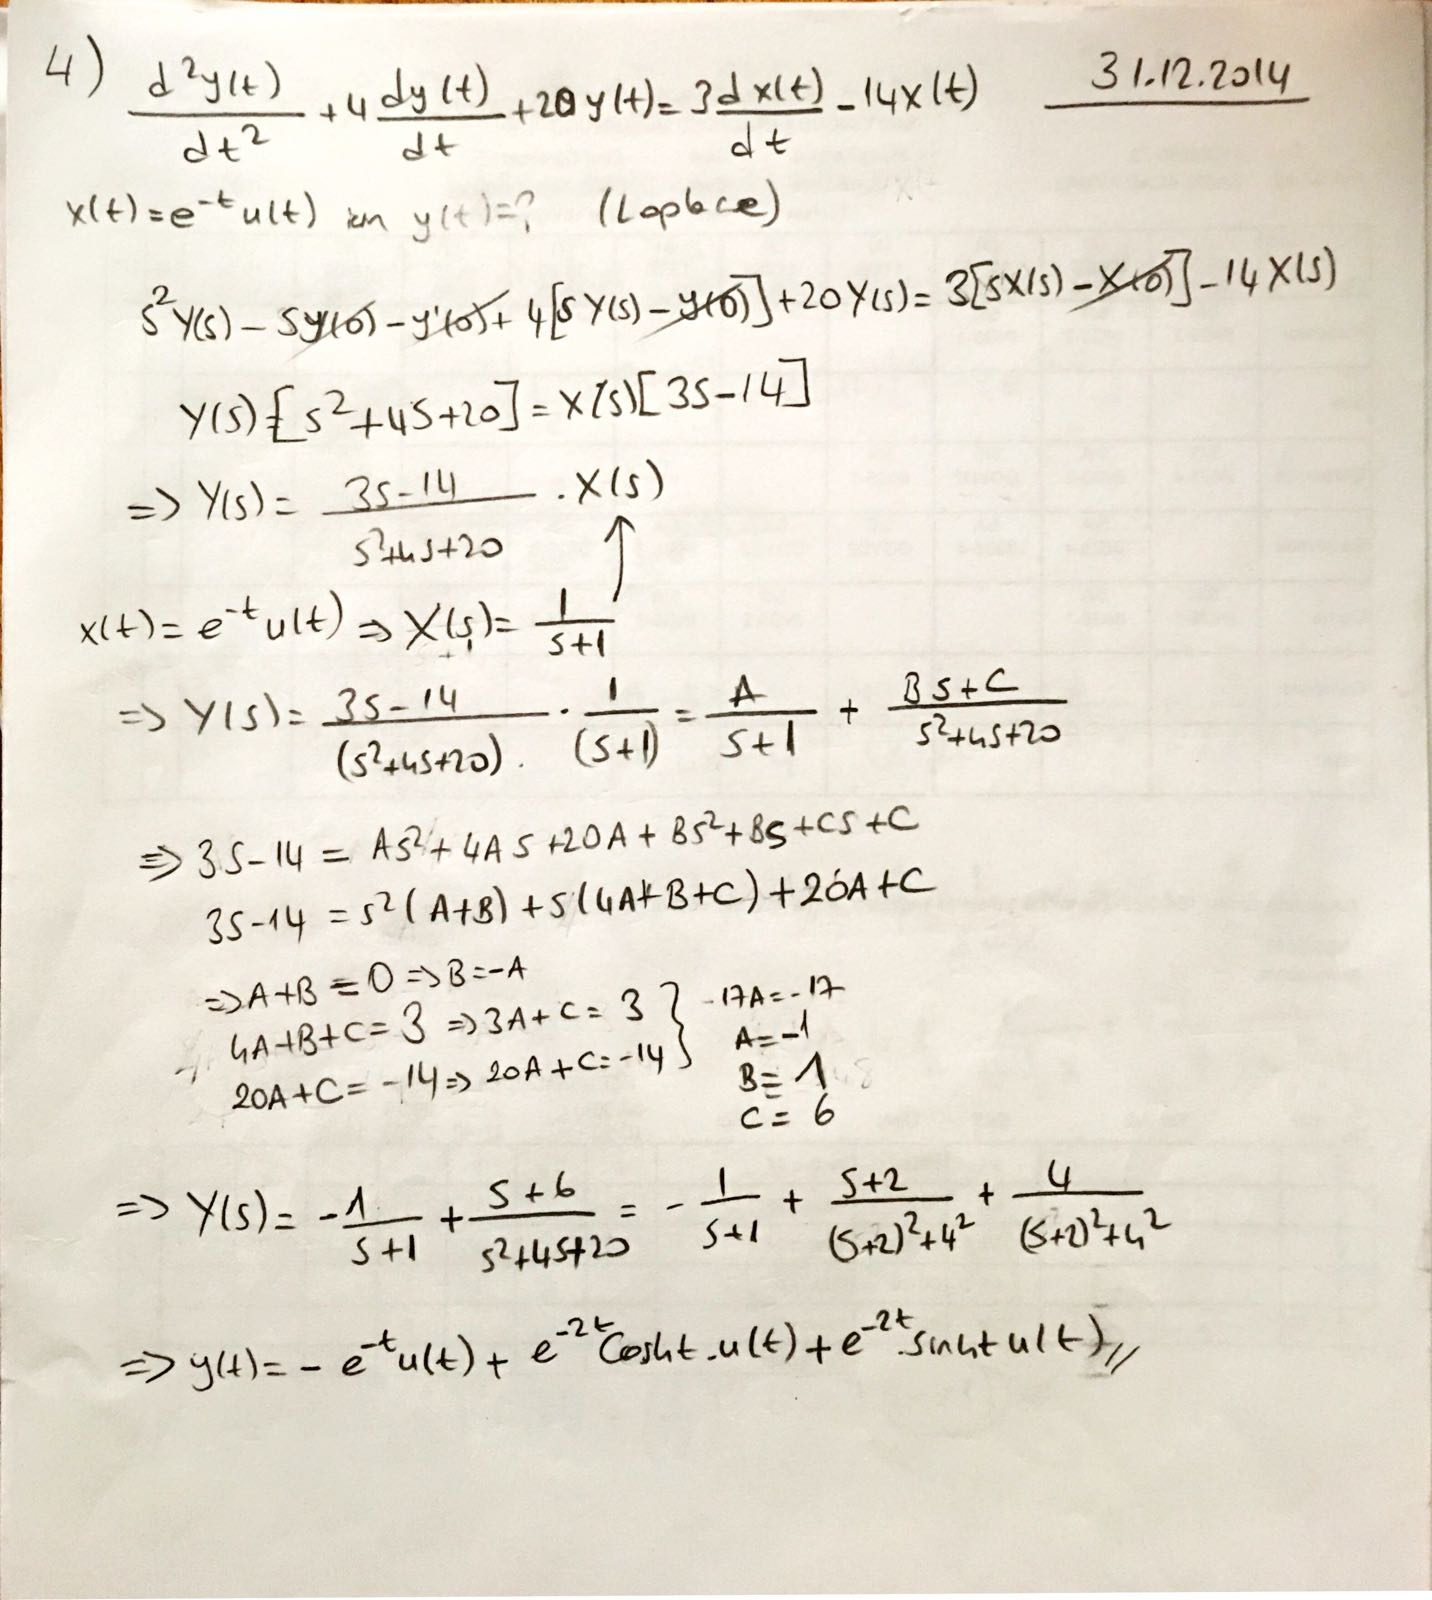 4) d²y(t)/dt² + 4 dy(t)/dt + 20 y(t) = 3 dx(t)/dt - 14x(t)
31.12.2014
x(t) = e^-t u(t) için y(t)=? (Laplace)
s²Y(s) - sy(0) - y'(0) + 4[sY(s) - y(0)] + 20Y(s) = 3[sX(s) - x(0)] - 14X(s)
Y(s)[s²+4s+20] = X(s)[3s-14]
=> Y(s) = 3s-14/s²+4s+20 . X(s)
x(t) = e^-t u(t) => X(s) = 1/s+1
=> Y(s) = 3s-14/(s²+4s+20) . 1/(s+1) = A/s+1 + Bs+C/s²+4s+20
=> 3s-14 = As²+4As+20A+Bs²+Bs+Cs+C
3s-14 = s²(A+B)+s(4A+B+C)+20A+C
=> A+B=0 => B=-A
4A+B+C=3 => 3A+C=3 } -17A=-17
20A+C=-14 => 20A+C=-14
A=-1
B=1
C=6
=> Y(s) = -1/s+1 + s+6/s²+4s+20 = - 1/s+1 + s+2/(s+2)²+4² + 4/(s+2)²+4²
=> y(t) = - e^-t u(t) + e^-2t Cos4t.u(t) + e^-2t.sin4t u(t)//